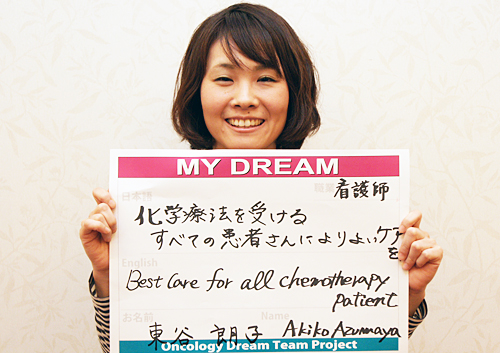 MY DREAM
日本語
職業
看護師
化学療法を受ける
すべての患者さんによりよいケア
を
English
Best Care for all chemotherapy
patient
お名前
Name
東谷 朗子 Akiko Azumaya
Oncology Dream Team Project